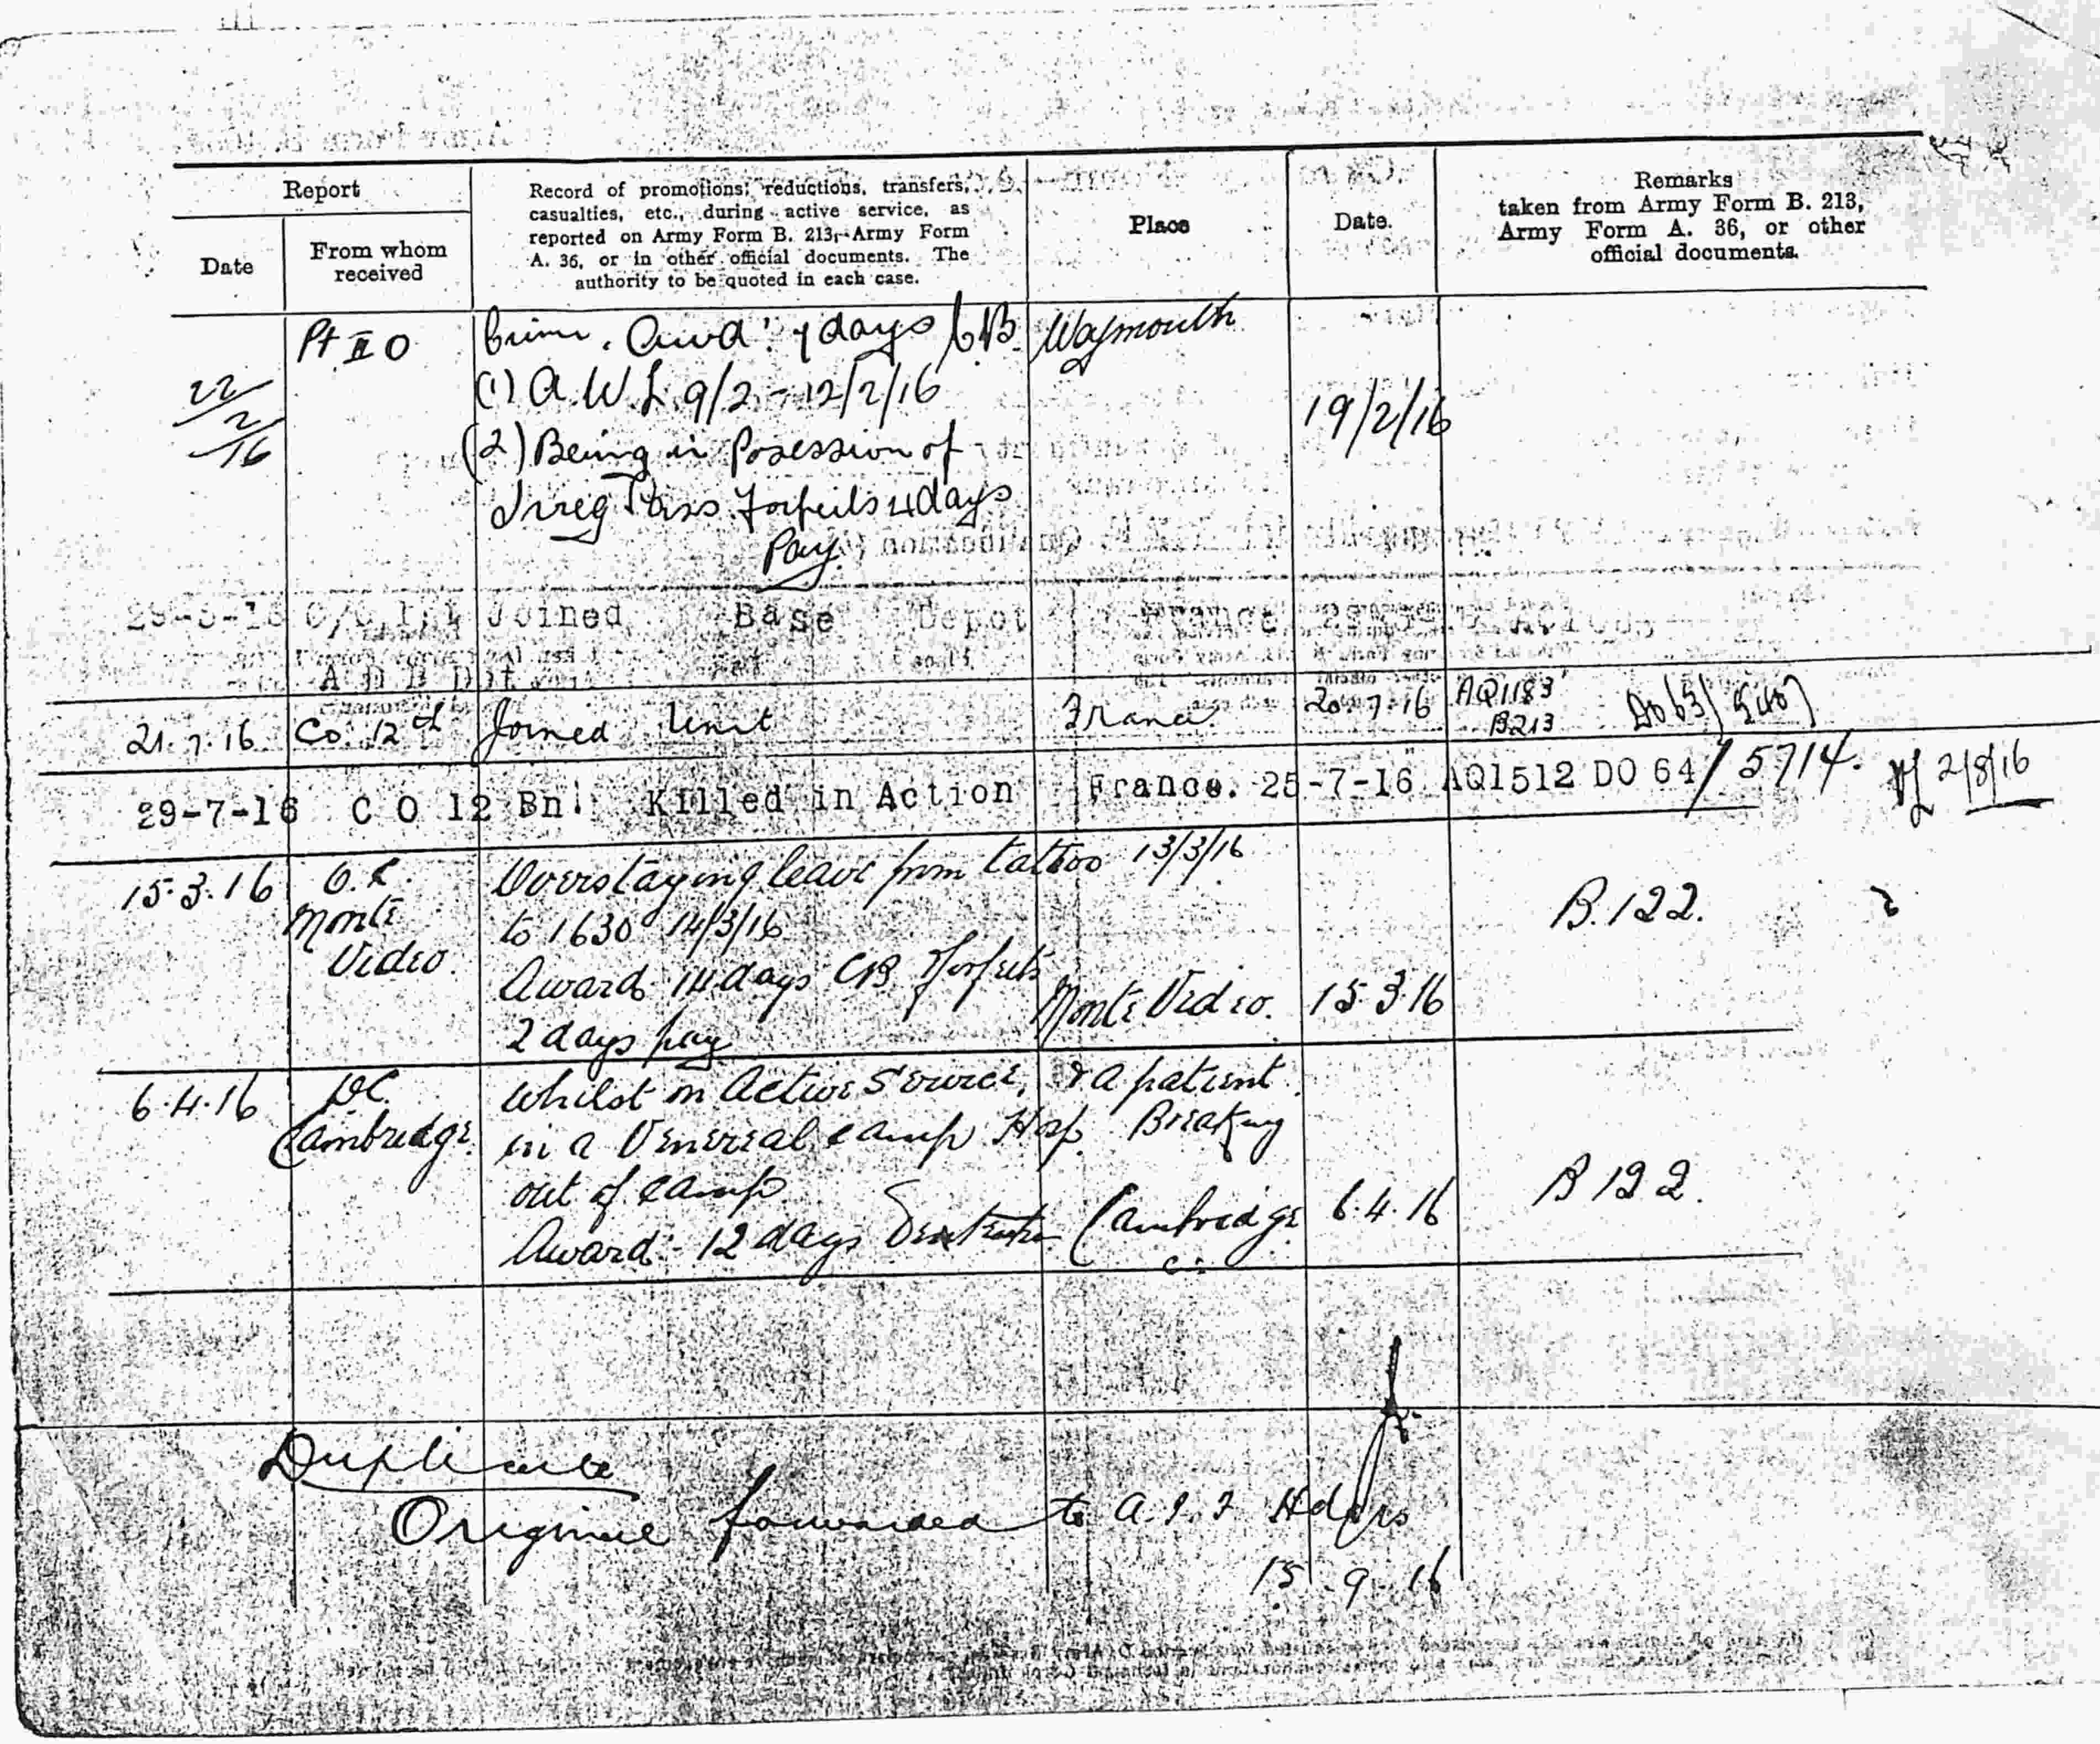 Report
Date
From whom received
Record of promotions, reductions, transfers,
casualties, etc., during active service, as
reported on Army Form B. 213, Army Form
A. 36, or in other official documents. The
authority to be quoted in each case.
Place
Date.
Remarks
taken from Army Form B. 213,
Army Form A. 36, or other
official documents.
22/2/16
Pt II O
Crime. Awd: 7 days C.B. Waymouth
(1) A.W.L. 9/2 - 12/2/16
19/2/16
(2) Being in Posession of
Irreg Pass. Forfeits 4 days
Pay.
Joined Base Depot France
A D B D
21.7.16 Co. 12th Joined Unit France 20.7.16 AQ1183
B213
29-7-16 C O 12 Bn. Killed in Action France. 25-7-16 AQ1512 DO 64/5714. 2/8/16
15.3.16 O.C. Monte Video.
Overstaying leave from tattoo 13/3/16
to 1630 14/3/16
Award 14 days CB Forfeits
2 days pay
Monte Video. 15.3.16
B.122.
6.4.16 OC. Cambridge.
Whilst on Active Service, & a patient
in a Venereal camp Hosp. Breaking
out of camp.
Award - 12 days Detention Cambridge 6.4.16
B 122.
Duplicate
Original forwarded to A.I.F Hdqrs
15.9.16